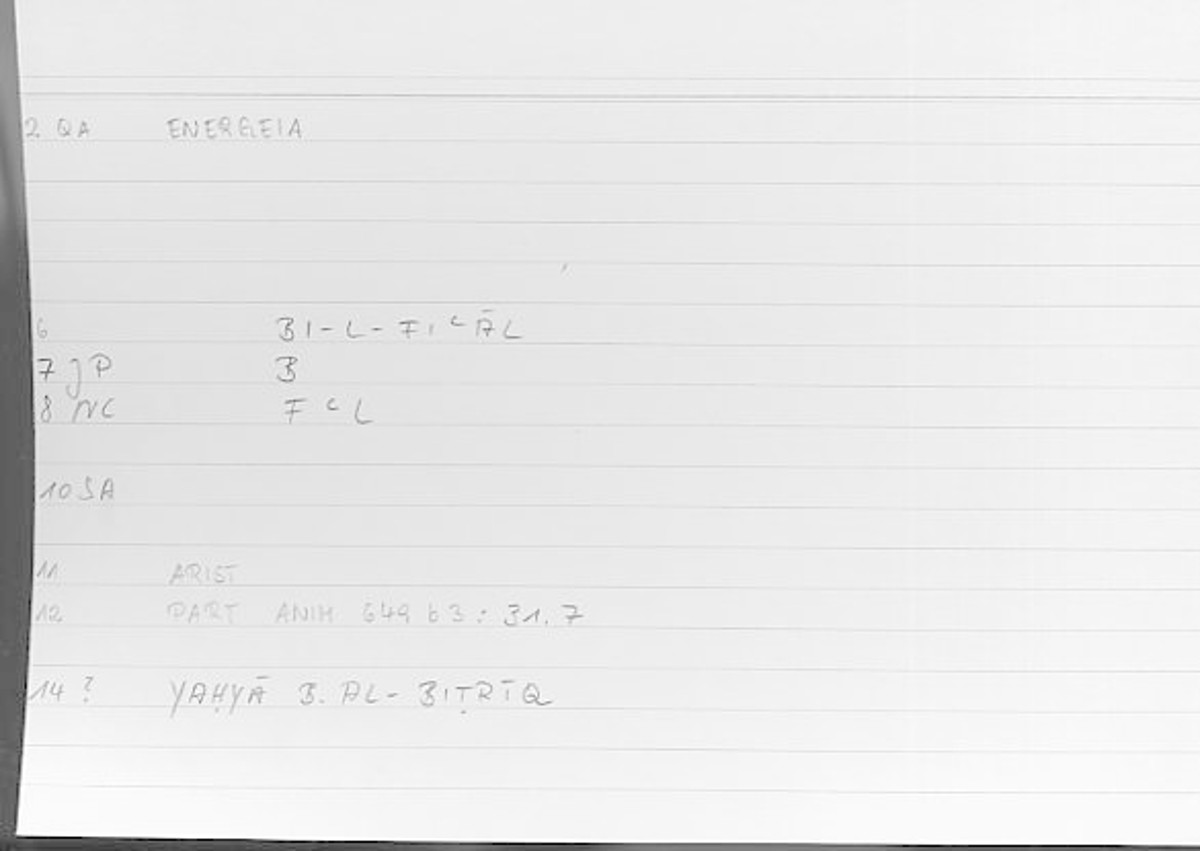 2 QA ENERGEIA
6 BI-L-FIᶜĀL
7 JP B
8 NC FᶜL
10 SA
11 ARIST
12 PART ANIM 649 b 3 : 31.7
14 ? YAḤYĀ B. AL-BIṬRĪQ